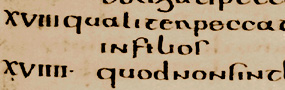 XVIII qualiter peccat
in filios
XVIIII· quod non sint